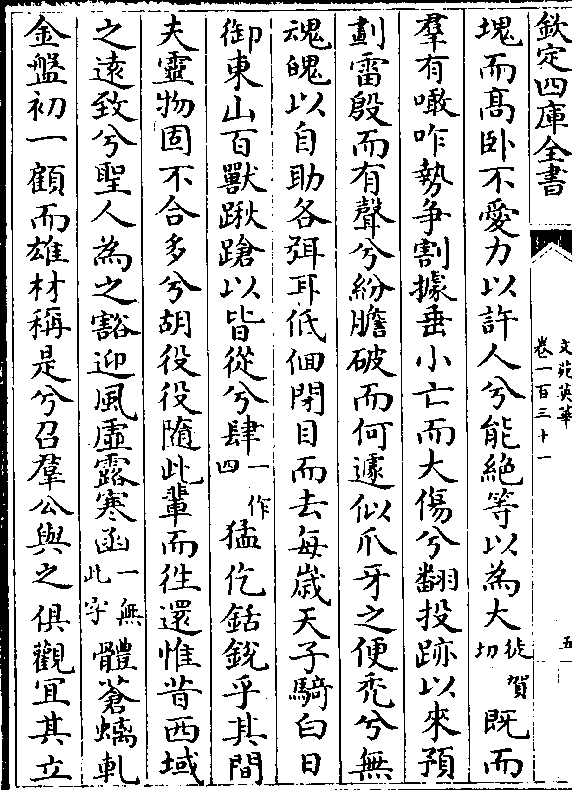 欽定四庫全書
文苑英華
卷一百三十一
五
塊而髙卧不愛力以許人兮能絶等以為大徒賀切既而
羣有噉咋勢争割據垂小亡而大傷兮翻投跡以來預
劃雷殷而有聲兮紛膽破而何遽似爪牙之便秃兮無
魂魄以自助各弭耳低佪閉目而去每歳天子騎白日
御東山百獸踿蹌以皆從兮肆一作四猛仡銛鋭乎其間
夫靈物固不合多兮胡役役隨此輩而徃還惟昔西域
之逺致兮聖人為之豁迎風虛露寒函一無此字體蒼螭軋
金盤初一顧而雄材稱是兮召羣公與之俱觀宜其立